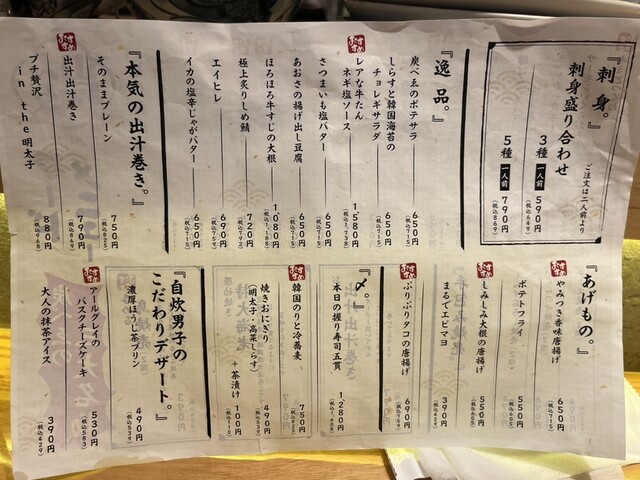 『刺身。』
刺身盛り合わせ
ご注文は二人前より
3種 一人前 590円
(税込649)
5種 一人前 790円
(税込869)
『逸品。』
炭べゑのポテサラ 650円
(税込715)
しらすと韓国海苔の
チョレギサラダ 650円
(税込715)
おすすめ
レアな牛たん
ネギ塩ソース 1580円
(税込1,738)
さつまいも塩バター 650円
(税込715)
あおさの揚げ出し豆腐 650円
(税込715)
ほろほろ牛すじの大根 1080円
(税込1,188)
極上炙りしめ鯖 720円
(税込792)
エイヒレ 690円
(税込759)
イカの塩辛じゃがバター 650円
(税込715)
『本気の出汁巻き。』
そのままプレーン 750円
(税込825)
おすすめ
出汁出汁巻き 790円
(税込869)
プチ贅沢
in the 明太子 880円
(税込968)
『あげもの。』
おすすめ
やみつき香味唐揚げ 650円
(税込715)
ポテトフライ 550円
(税込605)
おすすめ
しみしみ大根の唐揚げ 550円
(税込605)
まるでエビマヨ 390円
(税込429)
ぷりぷりタコの唐揚げ 690円
(税込759)
『〆。』
本日の握り寿司五貫 1,280円
(税込1,408)
おすすめ
韓国のりと冷蕎麦 750円
(税込825)
焼きおにぎり
(明太子・高菜しらす) 490円
(税込539)
+茶漬け 100円
(税込110)
『自炊男子の
こだわりデザート。』
濃厚ほうじ茶プリン 490円
(税込539)
おすすめ
アールグレイの
バスクチーズケーキ 530円
(税込583)
大人の抹茶アイス 390円
(税込429)